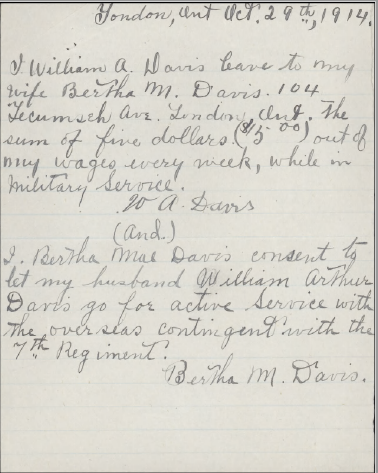 London, Ont Oct. 29th, 1914.
I William A. Davis leave to my
wife Bertha M. Davis. 104
Tecumseh Ave. London, Ont. The
sum of five dollars. ($5 00) out of
my wages every week, while in
Military Service.
W A. Davis
(And.)
I. Bertha Mae Davis consent to
let my husband William Arthur
Davis go for active Service with
the overseas contingent with the
7th Regiment.
Bertha M. Davis.